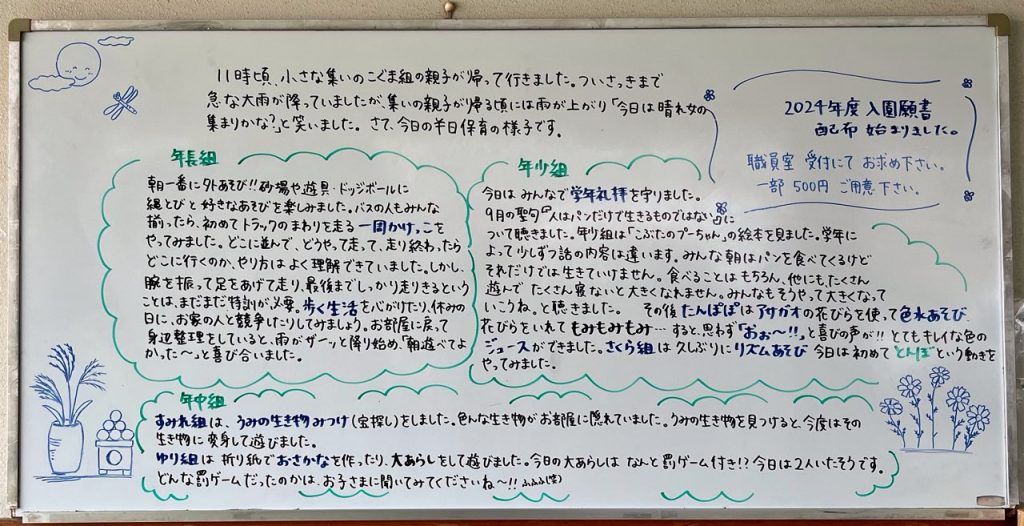 11時頃、小さな集いのこぐま組の親子が帰って行きました。ついさっきまで
急な大雨が降っていましたが、集いの親子が帰る頃には雨が上がり「今日は晴れ女の
集まりかな?」と笑いました。さて、今日の半日保育の様子です。
2024年度 入園願書
配布 始まりました。
職員室 受付にて お求め下さい。
一部 500円 ご用意下さい。
年長組
朝一番に外あそび!!砂場や遊具・ドッジボールに
縄とびと好きなあそびを楽しみました。バスの人もみんな
揃ったら、初めてトラックのまわりを走る一周かけっこを
やってみました。どこに並んで、どうやって走って、走り終わったら
どこに行くのか、やり方はよく理解できていました。しかし、
腕を振って足をあげて走り、最後までしっかり走りきるという
ことは、まだまだ特訓が必要。歩く生活を心がけたり、休みの
日に、お家の人と競争したりしてみましょう。お部屋に戻って
身辺整理をしていると、雨がザーッと降り始め、「朝遊べてよ
かった〜」と喜び合いました。
年少組
今日は みんなで学年礼拝を守りました。
9月の聖句「人はパンだけで生きるものではない」に
ついて聴きました。年少組は「こぶたのプーちゃん」の絵本を見ました。学年に
よって少しずつ話の内容は違います。みんな朝はパンを食べてくるけど
それだけでは生きていけません。食べることはもちろん、他にも、たくさん
遊んで たくさん寝ないと大きくなれません。みんなもそうやって大きくなって
いこうね。と聴きました。 その後たんぽぽはアサガオの花びらを使って色水あそび。
花びらをいれてもみもみもみ…すると、思わず「おぉ〜!!」と喜びの声が!!とてもキレイな色の
ジュースができました。さくら組は久しぶりにリズムあそび 今日は初めて"とんぼ"という動きを
やってみました。
年中組
すみれ組は、うみの生き物みつけ(宝探し)をしました。色んな生き物がお部屋に隠れていました。うみの生き物を見つけると、今度はその
生き物に変身して遊びました。
ゆり組は 折り紙でおさかなを作ったり、大あらしをして遊びました。今日の大あらしは なんと罰ゲーム付き!?今日は2人いたそうです。
どんな罰ゲームだったのかは、お子さまに聞いてみてくださいね〜!!ふふふ(笑)